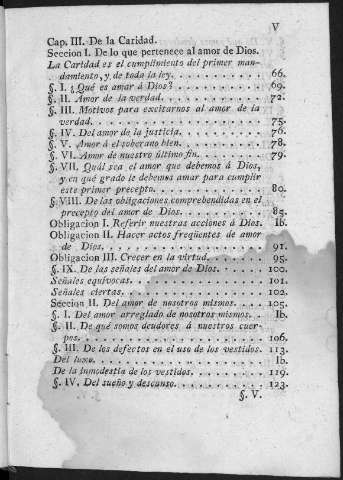 V
Cap. III. De la Caridad.
Seccion I. De lo que pertenece al amor de Dios.
La Caridad es el cumplimiento del primer man-
damiento, y de toda la ley. . . . . . . . . . . 66.
§. I. ¿Qué es amar á Dios? . . . . . . . . . . 69.
§. II. Amor de la verdad. . . . . . . . . . . . 72.
§. III. Motivos para excitarnos al amor de la
verdad. . . . . . . . . . . . . . . . . . 75.
§. IV. Del amor de la justicia. . . . . . . . . 76.
§. V. Amor á el soberano bien. . . . . . . . . 78.
§. VI. Amor de nuestro último fin. . . . . . . 79.
§. VII. Quál sea el amor que debemos á Dios,
y en qué grado le debemos amar para cumplir
este primer precepto. . . . . . . . . . . . 80.
§. VIII. De las obligaciones comprehendidas en el
precepto del amor de Dios. . . . . . . . . 85.
Obligacion I. Referir nuestras acciones á Dios. Ib.
Obligacion II. Hacer actos freqüentes de amor
de Dios. . . . . . . . . . . . . . . . . 91.
Obligacion III. Crecer en la virtud. . . . . . 95.
§. IX. De las señales del amor de Dios. . . . . 100.
Señales equívocas. . . . . . . . . . . . . . 101.
Señales ciertas. . . . . . . . . . . . . . . 102.
Seccion II. Del amor de nosotros mismos. . . . 105.
§. I. Del amor arreglado de nosotros mismos. . Ib.
§. II. De qué somos deudores á nuestros cuer-
pos. . . . . . . . . . . . . . . . . . . 106.
§. III. De los defectos en el uso de los vestidos. . 113.
Del luxo. . . . . . . . . . . . . . . . . . Ib.
De la inmodestia de los vestidos. . . . . . . . 119.
§. IV. Del sueño y descanso. . . . . . . . . . 123.
§. V.